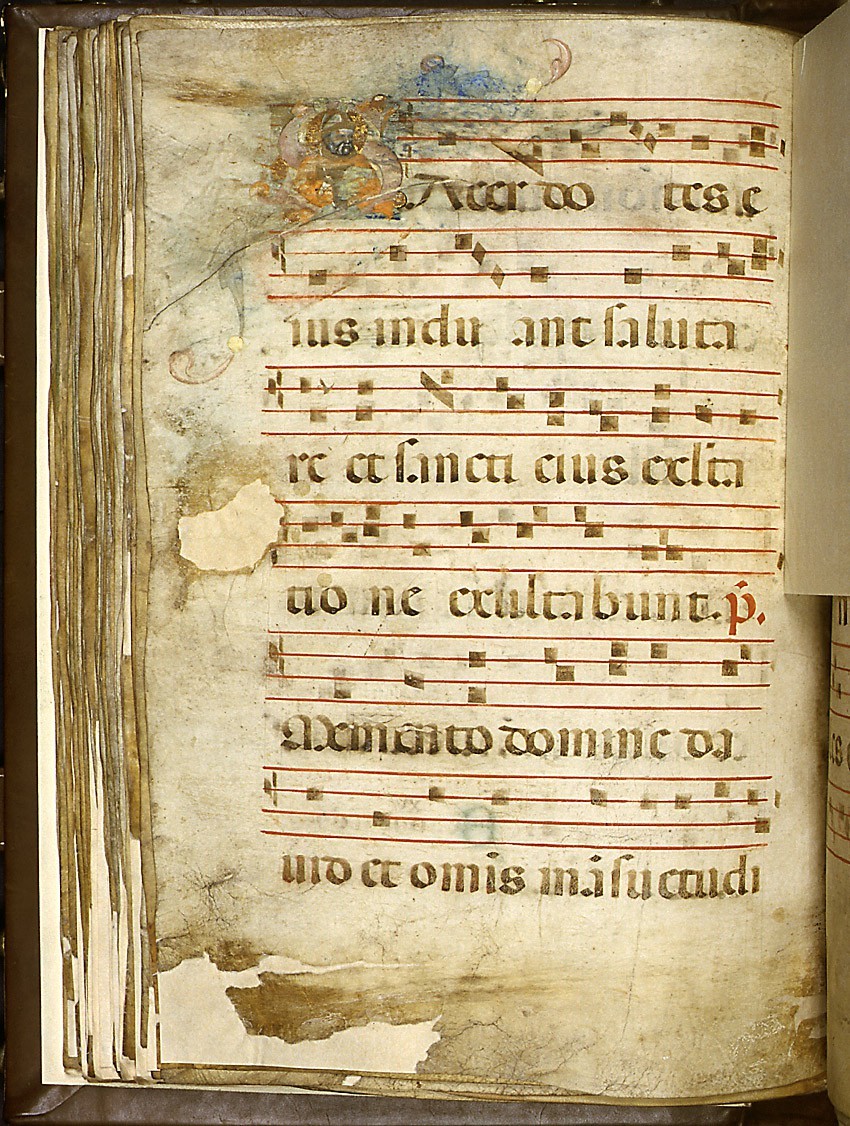 SAcer do tes e
ius indu ant saluta
re et sancti eius exulta
tiõ ne exulta bunt. p̃.
Memento domine da
uid et omĩs mãsuetudi